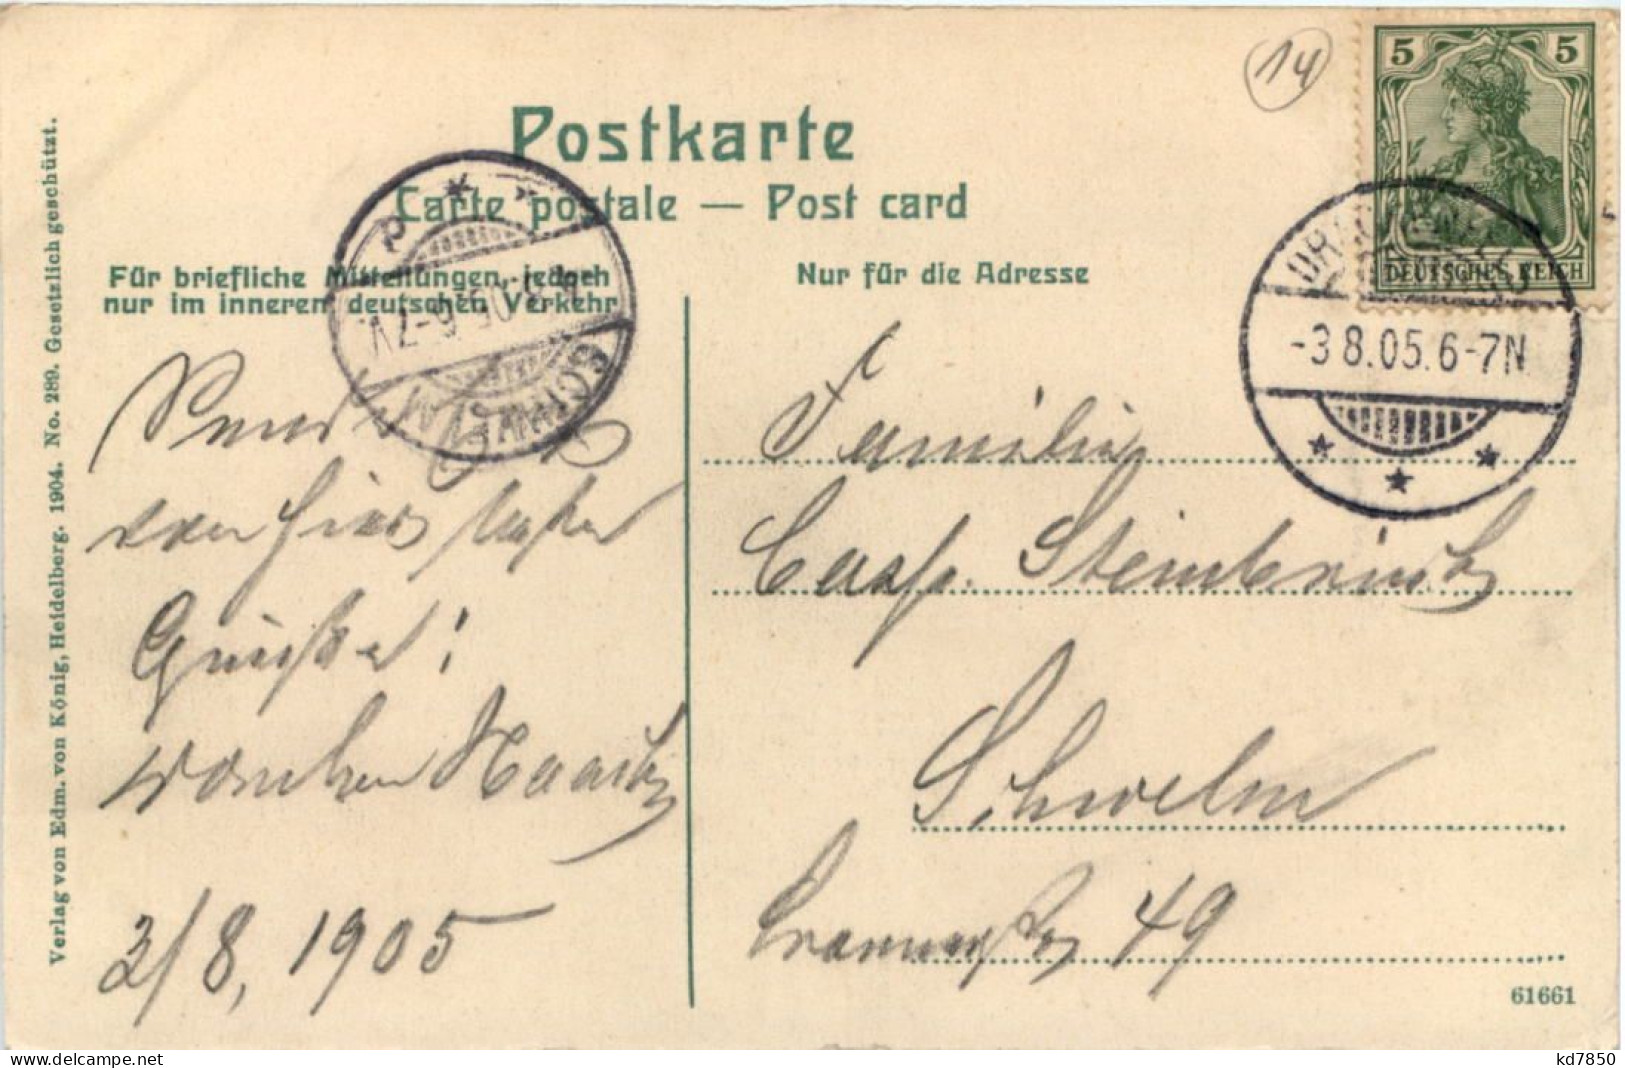 14
5 5
DEUTSCHES REICH
Postkarte
Carte postale — Post card
Für briefliche Mitteilungen, jedoch
nur im inneren deutschen Verkehr
Nur für die Adresse
-3 8.05.6-7N
SCHWELM
von hier
Grüße!
3/8, 1905
Familie
Casp. Steinbrink
Schwelm
49
61661
Verlag von Edm. von König, Heidelberg. 1904. No. 289. Gesetzlich geschützt.
kd7850